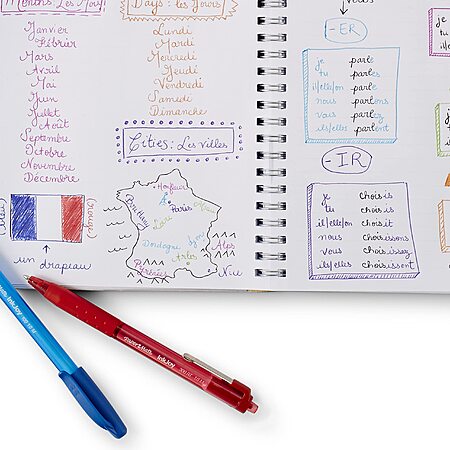 Days : les Jours
Janvier
Février
Mars
Avril
Mai
Juin
Juillet
Août
Septembre
Octobre
Novembre
Décembre
Lundi
Mardi
Mercredi
Jeudi
Vendredi
Samedi
Dimanche
Cities: Les Villes
(bleu)
(rouge)
un drapeau
Honfleur
Paris
Dordogne
Lyon
Arles
Alps
Pyrénées
Nice
verbs
-ER
je parle
tu parles
il/elle/on parle
nous parlons
vous parlez
ils/elles parlent
-IR
je choisis
tu choisis
il/elle/on choisit
nous choisissons
vous choisissez
ils/elles choisissent
je
tu
PAPER MATE InkJoy
InkJoy